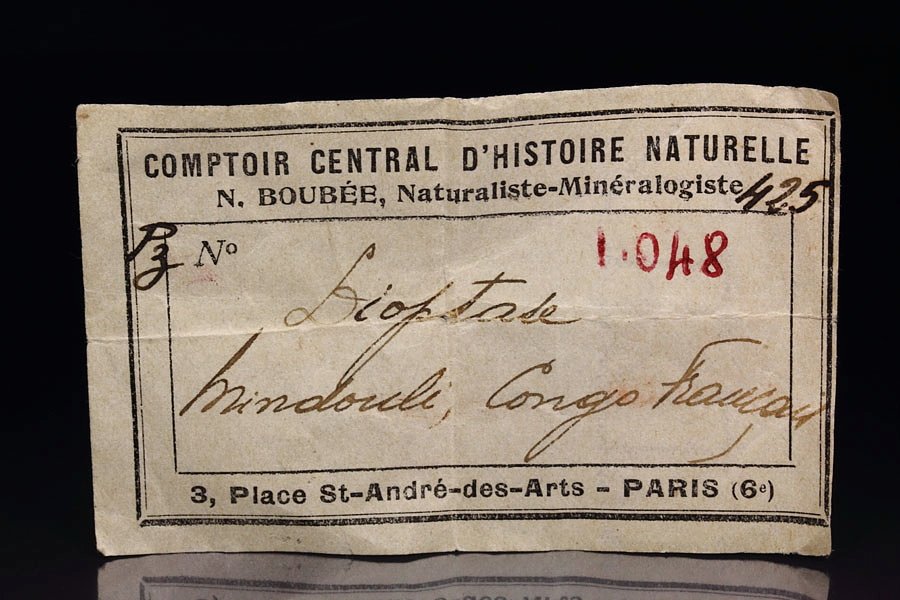 COMPTOIR CENTRAL D'HISTOIRE NATURELLE
N. BOUBÉE, Naturaliste-Minéralogiste
425
Nº 1.048
Dioptase
Mindouli, Congo Français
3, Place St-André-des-Arts - PARIS (6e)